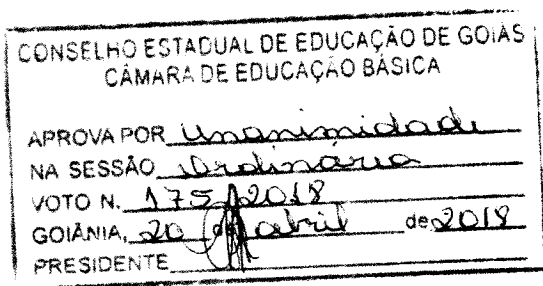 CONSELHO ESTADUAL DE EDUCAÇÃO DE GOIÁS
CÂMARA DE EDUCAÇÃO BÁSICA
APROVA POR unanimidade
NA SESSÃO ordinária
VOTO N. 175/2018
GOIÂNIA, 20 de abril de 2018
PRESIDENTE